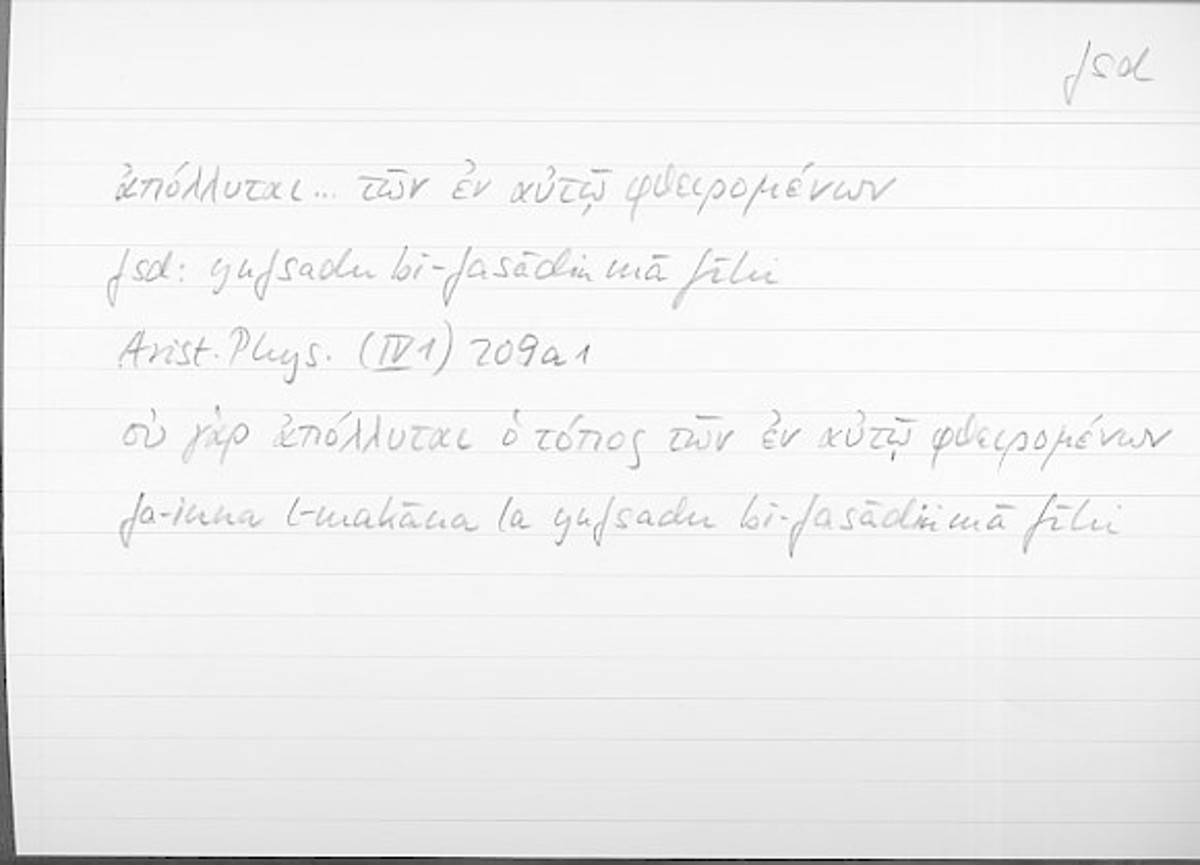 fsd
ἀπόλλυται... τῶν ἐν αὐτῷ φθειρομένων
fsd: yufsadu bi-fasādin mā fīhi
Arist. Phys. (IV 1) 209a1
οὐ γὰρ ἀπόλλυται ὁ τόπος τῶν ἐν αὐτῷ φθειρομένων
fa-inna l-makāna la yufsadu bi-fasādin mā fīhi